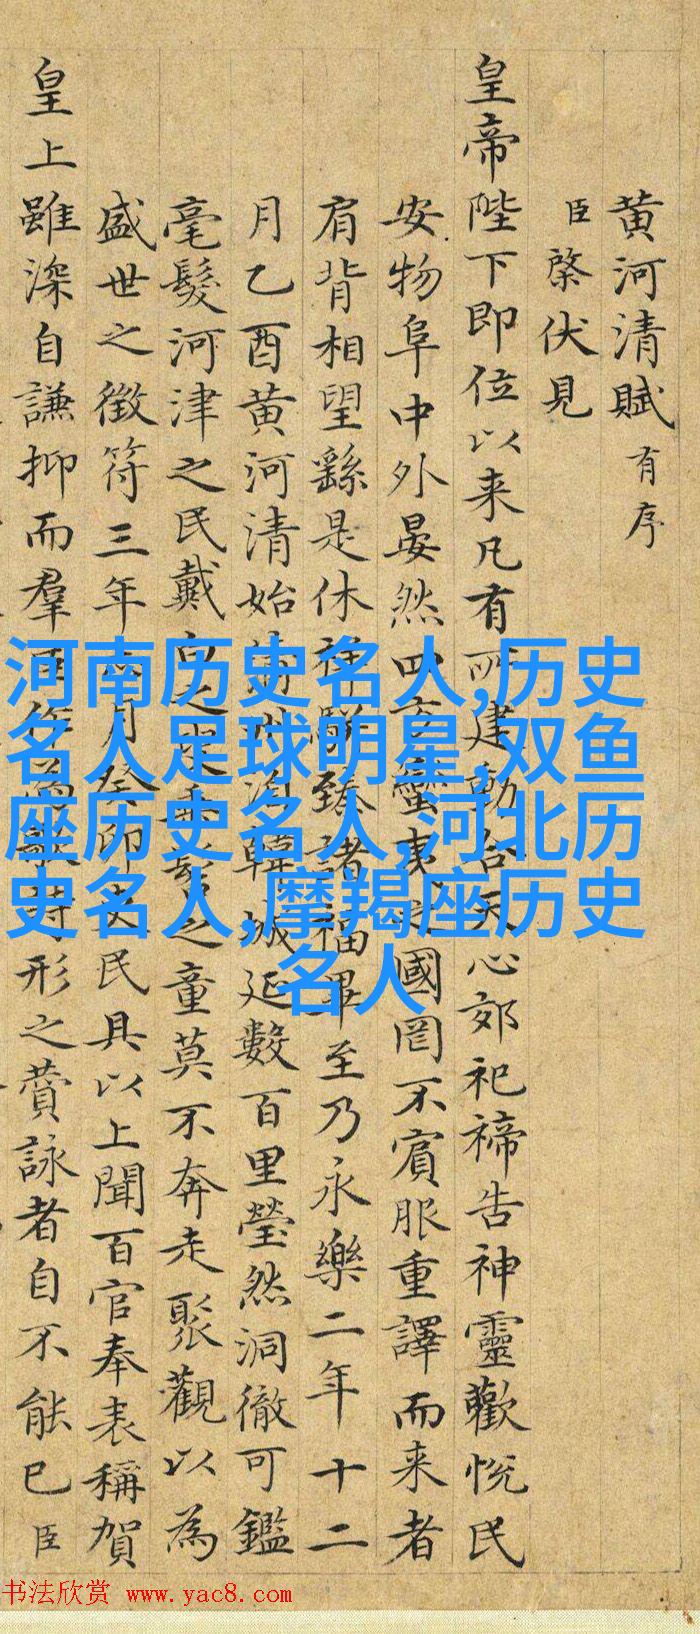 黄河清賦 有序
臣棨伏見
皇帝陛下即位以来凡有所建動合天心郊祀禘告神靈歡恱民
安物阜中外晏然四方蠻夷國罔不賓服重譯而来者
肩背相望繇是休祥騈臻諸福畢至乃永樂二年十二
月乙酉黄河清始蒲州韓城延數百里瑩然洞徹可鑑
毫髮河津之民戴白之叟垂髫之童莫不奔走聚觀以為
盛世之徵符三年月癸卯吏民具以上聞百官奉表稱賀
皇上雖深自謙抑而羣臣作為歌詩形之賛詠者自不能已臣
河南历史名人,历史
名人足球明星,双鱼
座历史名人,河北历
史名人,摩羯座历史
名人
书法欣赏 www.yac8.com